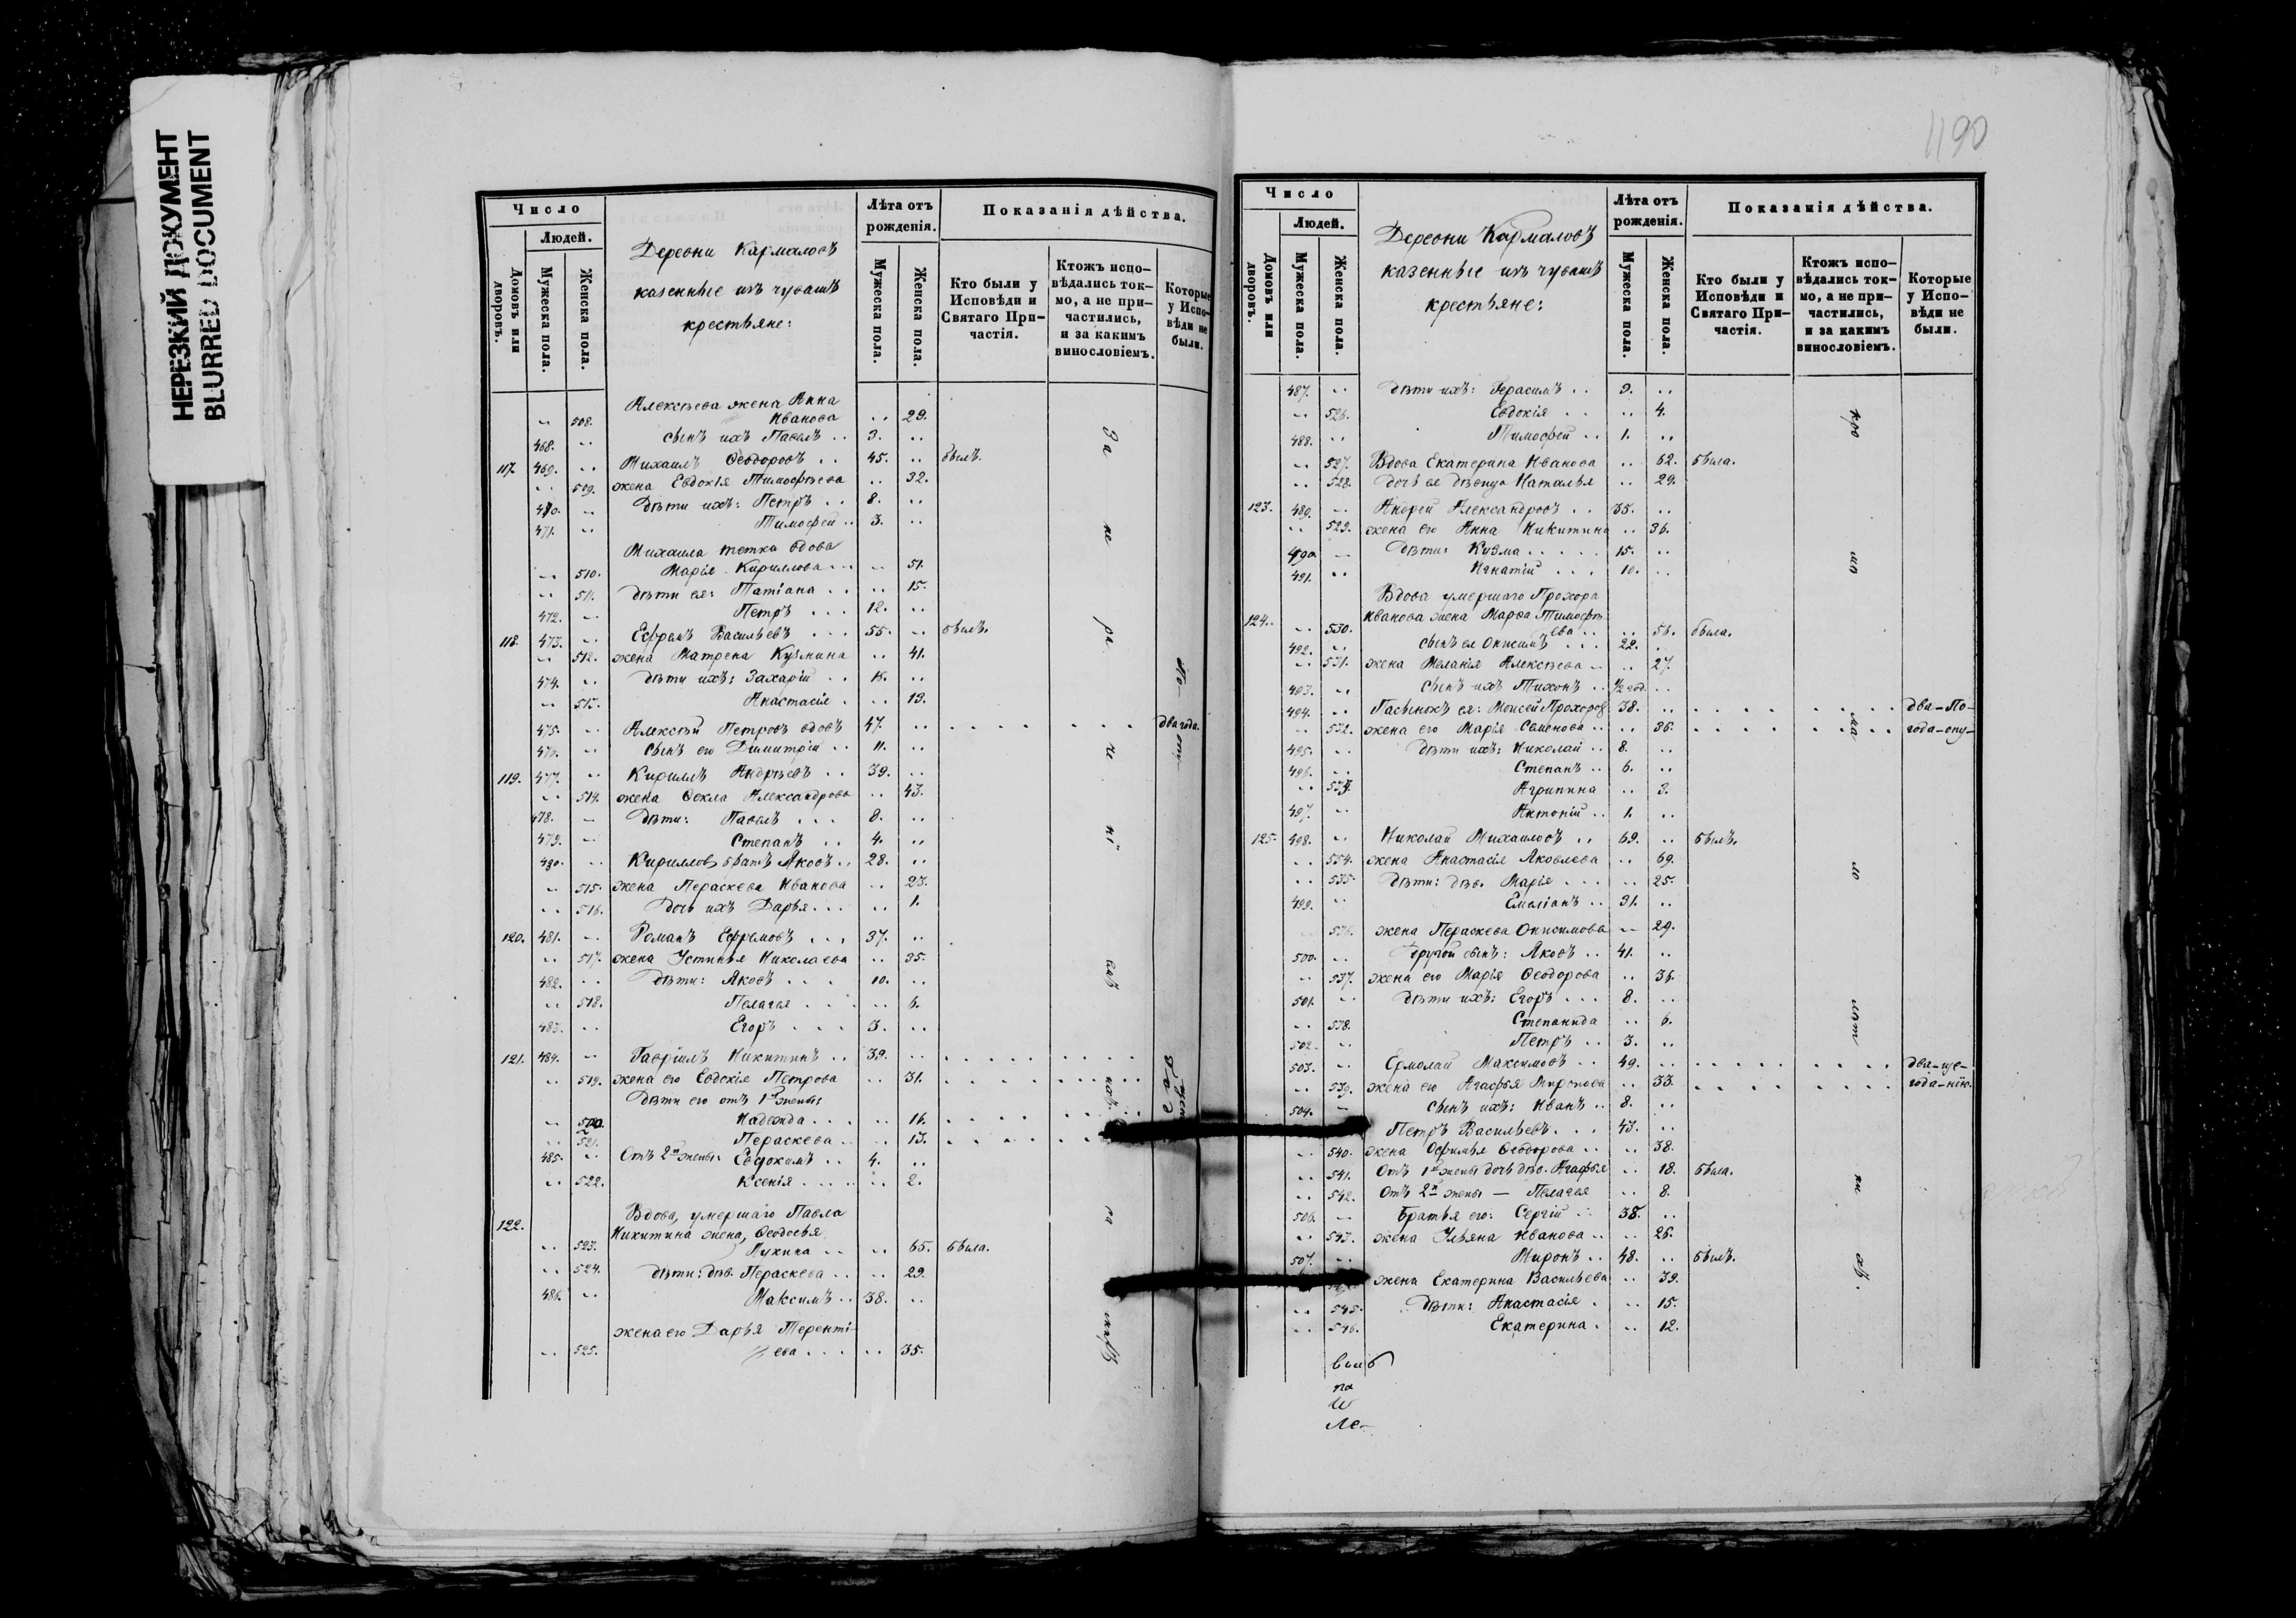 НЕРЕЗКИЙ ДОКУМЕНТ
BLURRED DOCUMENT
Число
Людей.
Домовъ или дворовъ.
Мужеска пола.
Женска пола.
Деревни Кармаловъ
казенные изъ чувашъ
крестьяне:
Лѣта отъ рожденія.
Мужеска пола.
Женска пола.
Показанія дѣйства.
Кто были у Исповѣди и Святаго Причастія.
Ктожъ исповѣдались токмо, а не причастились, и за какимъ винословіемъ.
Которые у Исповѣди не были.
Алексѣева жена Анна
.. 508. Иванова .. 29.
468. .. сынъ ихъ Павелъ .. 3. ..
117. 469. .. Михаилъ Ѳеодоровъ .. 45. .. былъ.
.. 509. жена Евдокія Тимофѣева .. 32.
470. .. дѣти ихъ: Петръ .. 8. ..
471. .. Тимофей .. 3. ..
Михаила тетка вдова
.. 510. Марія Кириллова .. 51.
.. 511. дѣти ея: Татіана .. 15.
472. .. Петръ ... 12. ..
118. 473. .. Ефремъ Васильевъ ... 55. .. былъ.
.. 512. жена Матрена Кузмина .. 41.
474. .. дѣти ихъ: Захарій ..
.. 513. Анастасія . .. 13.
475. .. Алексѣй Петровъ вдовъ 47. .. два года.
476. .. сынъ его Димитрій .. 11. ..
119. 477. .. Кириллъ Андреевъ .. 39. ..
.. 514. жена Ѳекла Александрова .. 43.
478. .. Дѣти: Павелъ ... 8. ..
479. .. Степанъ .. 4. ..
480. .. Кирилловъ братъ Яковъ .. 28. ..
.. 515. жена Пераскева Иванова .. 23.
.. 516. дочь ихъ Дарья ... .. 1.
120. 481. .. Романъ Ефремовъ ... 37. ..
.. 517. жена Устинья Николаева .. 35.
482. .. Дѣти: Яковъ ... 10. ..
.. 518. Пелагея ... .. 6.
483. .. Егоръ ... 3. ..
121. 484. .. Гавріилъ Никитинъ .. 39. ..
.. 519. жена его Евдокія Петрова .. 31.
Дѣти его отъ 1й жены
.. 520. Надежда .... .. 16.
.. 521. Пераскева .. .. 13.
485. .. Отъ 2й жены: Евдокимъ .. 4. ..
.. 522. Ксенія .... .. 2.
122. Вдова, умершаго Павла
Никитина жена, Ѳеодосья
.. 523. Лукина .. .. 65. была.
.. 524. дѣти: дѣв. Пераскева .. .. 29.
486. .. Максимъ .. 38. ..
жена его Дарья Терентi-
.. 525. ева ... .. 35.
1190
Число
Людей.
Домовъ или дворовъ.
Мужеска пола.
Женска пола.
Деревни Кармаловъ
казенные изъ чувашъ
крестьяне:
Лѣта отъ рожденія.
Мужеска пола.
Женска пола.
Показанія дѣйства.
Кто были у Исповѣди и Святаго Причастія.
Ктожъ исповѣдались токмо, а не причастились, и за какимъ винословіемъ.
Которые у Исповѣди не были.
487. .. дѣти ихъ: Герасимъ .. 9. ..
.. 526. Евдокія .. .. 4.
488. .. Тимофей .. 1. ..
.. 527. Вдова Екатерина Иванова .. 62. была.
.. 528. дочь ея дѣвица Наталья .. 29.
123. 489. .. Андрей Александровъ .. 35. ..
.. 529. жена его Анна Никитина .. 36.
490. .. Дѣти: Кузма ..... 15. ..
491. .. Игнатій ... 10. ..
Вдова умершаго Прохора
124. Иванова жена Марѳа Тимофѣ-
.. 530. ева .. .. 56. была.
492. .. сынъ ея Онисимъ ... 22. ..
.. 531. жена Меланія Алексѣева .. .. 27.
493. .. сынъ ихъ Тихонъ .. 1/2 год. ..
494. .. Пасынокъ ея: Моисей Прохоров 38. .. два-По-
.. 532. жена его Марія Семенова .. .. 36. года-опу-
495. .. дѣти ихъ: Николай .. 8. ..
496. .. Степанъ .. 6. ..
.. 533. Агрипина .. 3.
497. .. Антоній .. 1. ..
125. 498. .. Николай Михаиловъ .. 69. .. былъ.
.. 534. жена Анастасія Яковлева .. 69.
.. 535. дѣти: дѣв. Марія ... .. 25.
499. .. Емеліанъ .. 31. ..
536. жена Пераскева Онисимова .. 29.
500. .. другой сынъ: Яковъ .. 41. ..
.. 537. жена его Марія Ѳеодорова .. 36.
501. .. дѣти ихъ: Егоръ ... 8. ..
.. 538. Степанида .. 6.
502. .. Петръ .. 3. ..
503. .. Ермолай Максимовъ .. 49. .. два-ще-
.. 539. жена его Агафья Миронова .. 33. года-нію.
504. .. сынъ ихъ: Иванъ .. 8. ..
Петръ Васильевъ ... 43. ..
.. 540. жена Офимья Ѳеодорова .. .. 38.
.. 541. Отъ 1й жены дочь дѣв. Агафья .. 18. была.
.. 542. Отъ 2й жены — Пелагея .. 8.
506. .. Братья его: Сергій .. 38. ..
.. 543. жена Ульяна Иванова .. .. 26.
507. .. Миронъ .. 48. .. былъ.
жена Екатерина Васильева .. 39.
.. 545. Дѣти: Анастасія . .. 15.
.. 546. Екатерина . .. 12.